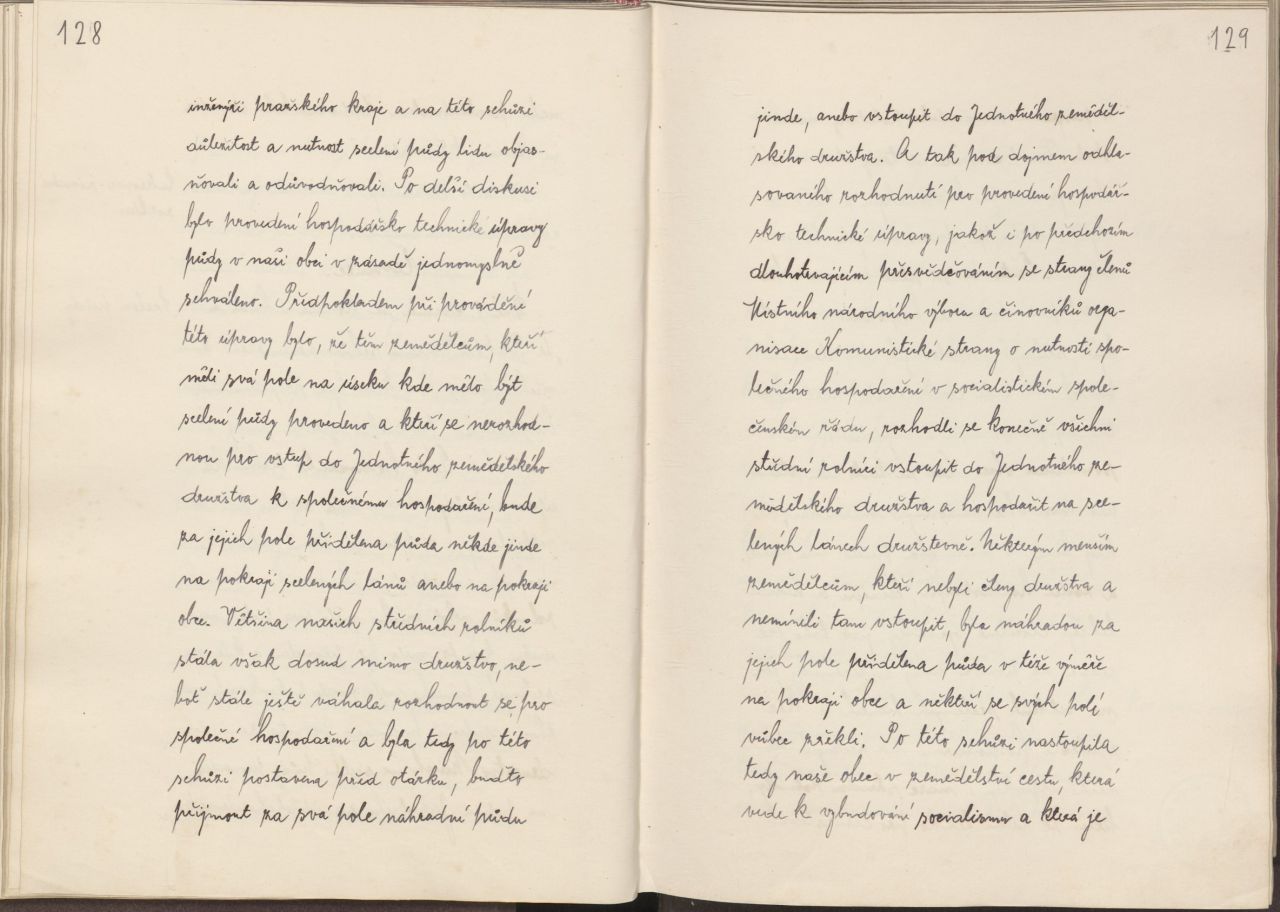 128
inženýři pražského kraje a na této schůzi
důležitost a nutnost scelení půdy lidu objas-
ňovali a odůvodňovali. Po delší diskusi
bylo provedení hospodářsko technické úpravy
půdy v naší obci v zásadě jednomyslně
schváleno. Předpokladem při provádění
této úpravy bylo, že těm zemědělcům, kteří
měli svá pole na úseku kde mělo být
scelení půdy provedeno a kteří se nerozhod-
nou pro vstup do Jednotného zemědělského
družstva k společnému hospodaření, bude
za jejich pole přidělena půda někde jinde
na pokraji scelených lánů anebo na pokraji
obce. Většina našich středních rolníků
stála však dosud mimo družstvo, ne-
boť stále ještě váhala rozhodnout se pro
společné hospodaření a byla tedy po této
schůzi postavena před otázku, buďto
přijmout za svá pole náhradní půdu
129
jinde, anebo vstoupit do Jednotného zeměděl-
ského družstva. A tak pod dojmem odhla-
sovaného rozhodnutí pro provedení hospodář-
sko technické úpravy, jakož i po předchozím
dlouhotrvajícím přesvědčováním se strany členů
Místního národního výboru a činovníků orga-
nisace Komunistické strany o nutnosti spo-
lečného hospodaření v socialistickém spole-
čenském řádu, rozhodli se konečně všichni
střední rolníci vstoupit do Jednotného ze-
mědělského družstva a hospodařit na sce-
lených lánech družstevně. Některým menším
zemědělcům, kteří nebyli členy družstva a
nemínili tam vstoupit, byla náhradou za
jejich pole přidělena půda v téže výměře
na pokraji obce a někteří se svých polí
vůbec zřekli. Po této schůzi nastoupila
tedy naše obec v zemědělství cestu, která
vede k vybudování socialismu a která je